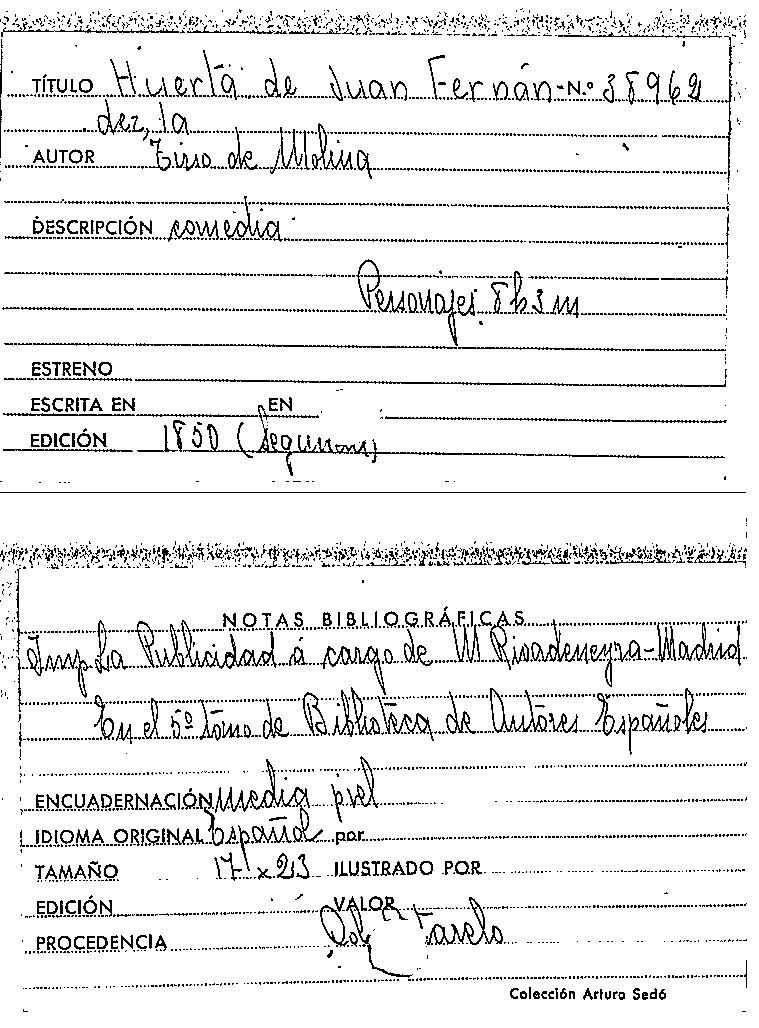 TÍTULO Huerta de Juan Fernán- N.º 38962
dez, la
AUTOR Tirso de Molina
DESCRIPCIÓN comedia
Personajes 8 h 3 m
ESTRENO
ESCRITA EN EN
EDICIÓN 1850 (
NOTAS BIBLIOGRÁFICAS
Imp La Publicidad á cargo de M Rivadeneyra-Madrid
En el 5º tomo de Biblioteca de Autores Españoles
ENCUADERNACIÓN media piel
IDIOMA ORIGINAL Español por
TAMAÑO 17 x 23 ILUSTRADO POR
EDICIÓN VALOR
PROCEDENCIA
Colección Arturo Sedó